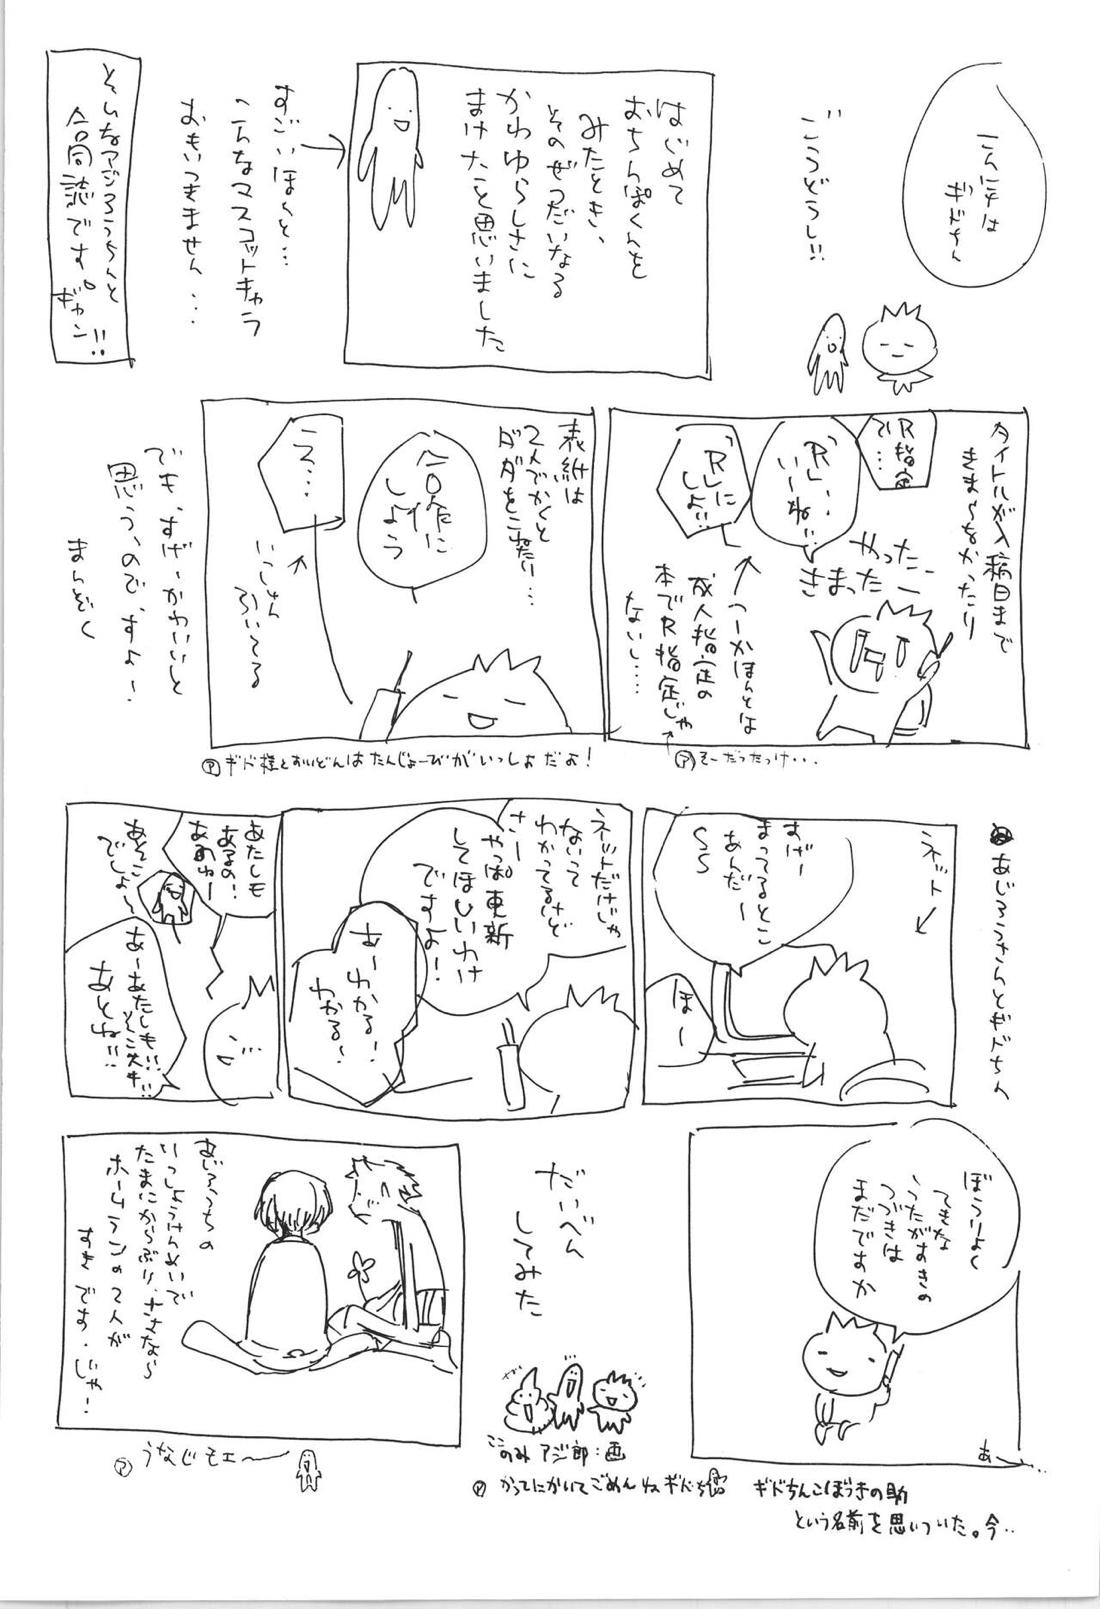 こんにチは
ギドちん
ごうどうし!!
はじめて
おちんぽくんを
みたとき、
そのぜつだいなる
かわゆらしさに
まけたと思いました
すごいほんと…
こんなマスコットキャラ
おもいつきません…
そんなアジろうちんと
合同誌です。ギャン!!
タイトルが入稿日まで
きまらなかったり
R指定
で…
「R」…
い〜ね…
「R」に
しよ!!
やったー
きまったー
つーかほんとは
成人指定の
本でR指定じゃ
ないし……
ア そーだったっけ・・・
表紙は
2人でかくと
ダダをこねたり…
合作に
しよう
え…
いっしょん
ふいてる
でも、すげーかわいいと
思う、ので、すよ!
まんぞく
ア ギド様とすいどんはたんじょーびがいっしょだよ!
あじろうさんとギドちん
ネット
すげー
まってるとこ
あんだー
ほー
ネットだけじゃ
ないって
わかってるけど
さー
やっぱ更新
してほしいわけ
ですよ!
あーわかる!
わかる!
あたしも
あるの!
あのねー
あそこ
でしょ〜
あーあたしも!!
あとね!!
ぼうりょく
てきな
うたがすきの
つづきは
まだですか
あ〜…
だいべん
してみた
ここのみアジ郎:画
ア かってにかいてごめんねギドちん
ギドちんこぼうきの助
という名前を思いついた。今‥
あじろうちの
いっしょうけんめいで
たまにからぶり、さよなら
ホームランの2人が
すきです。じゃ!
ア うなじモエ〜